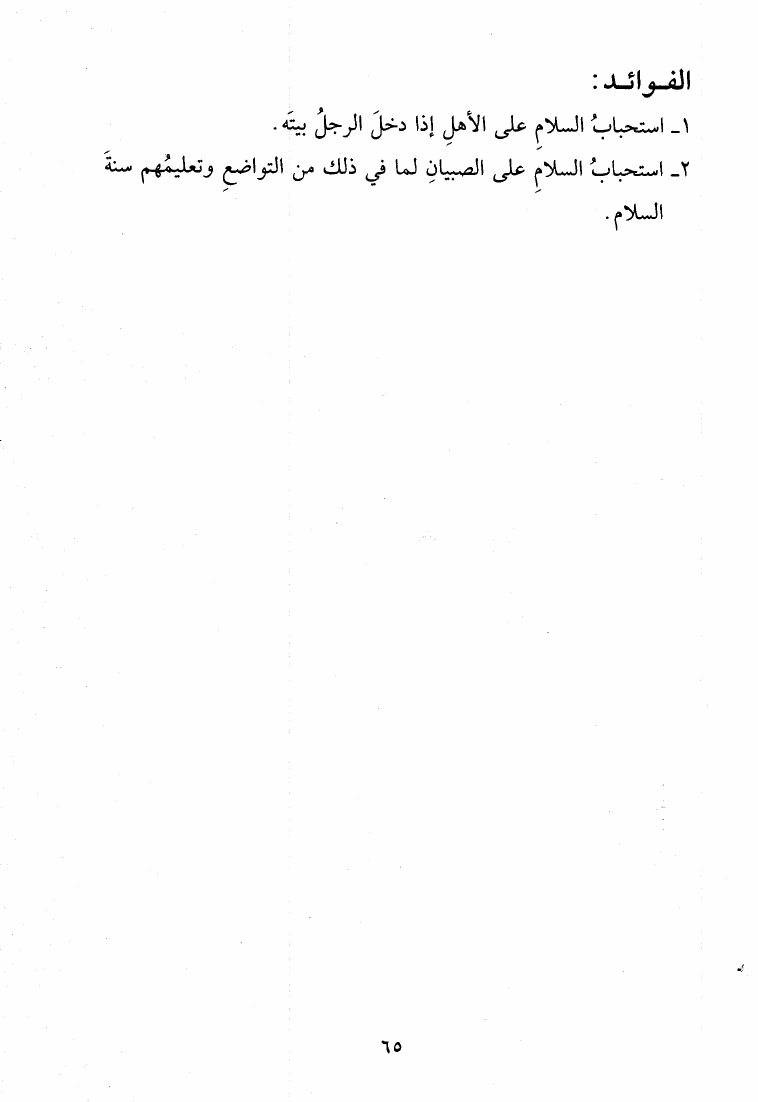 الفوائد:
١- استحبابُ السلامِ على الأهلِ إذا دخلَ الرجلُ بيتَه.
٢- استحبابُ السلامِ على الصبيانِ لما في ذلك من التواضعِ وتعليمُهم سنةَ
السلام.
٦٥